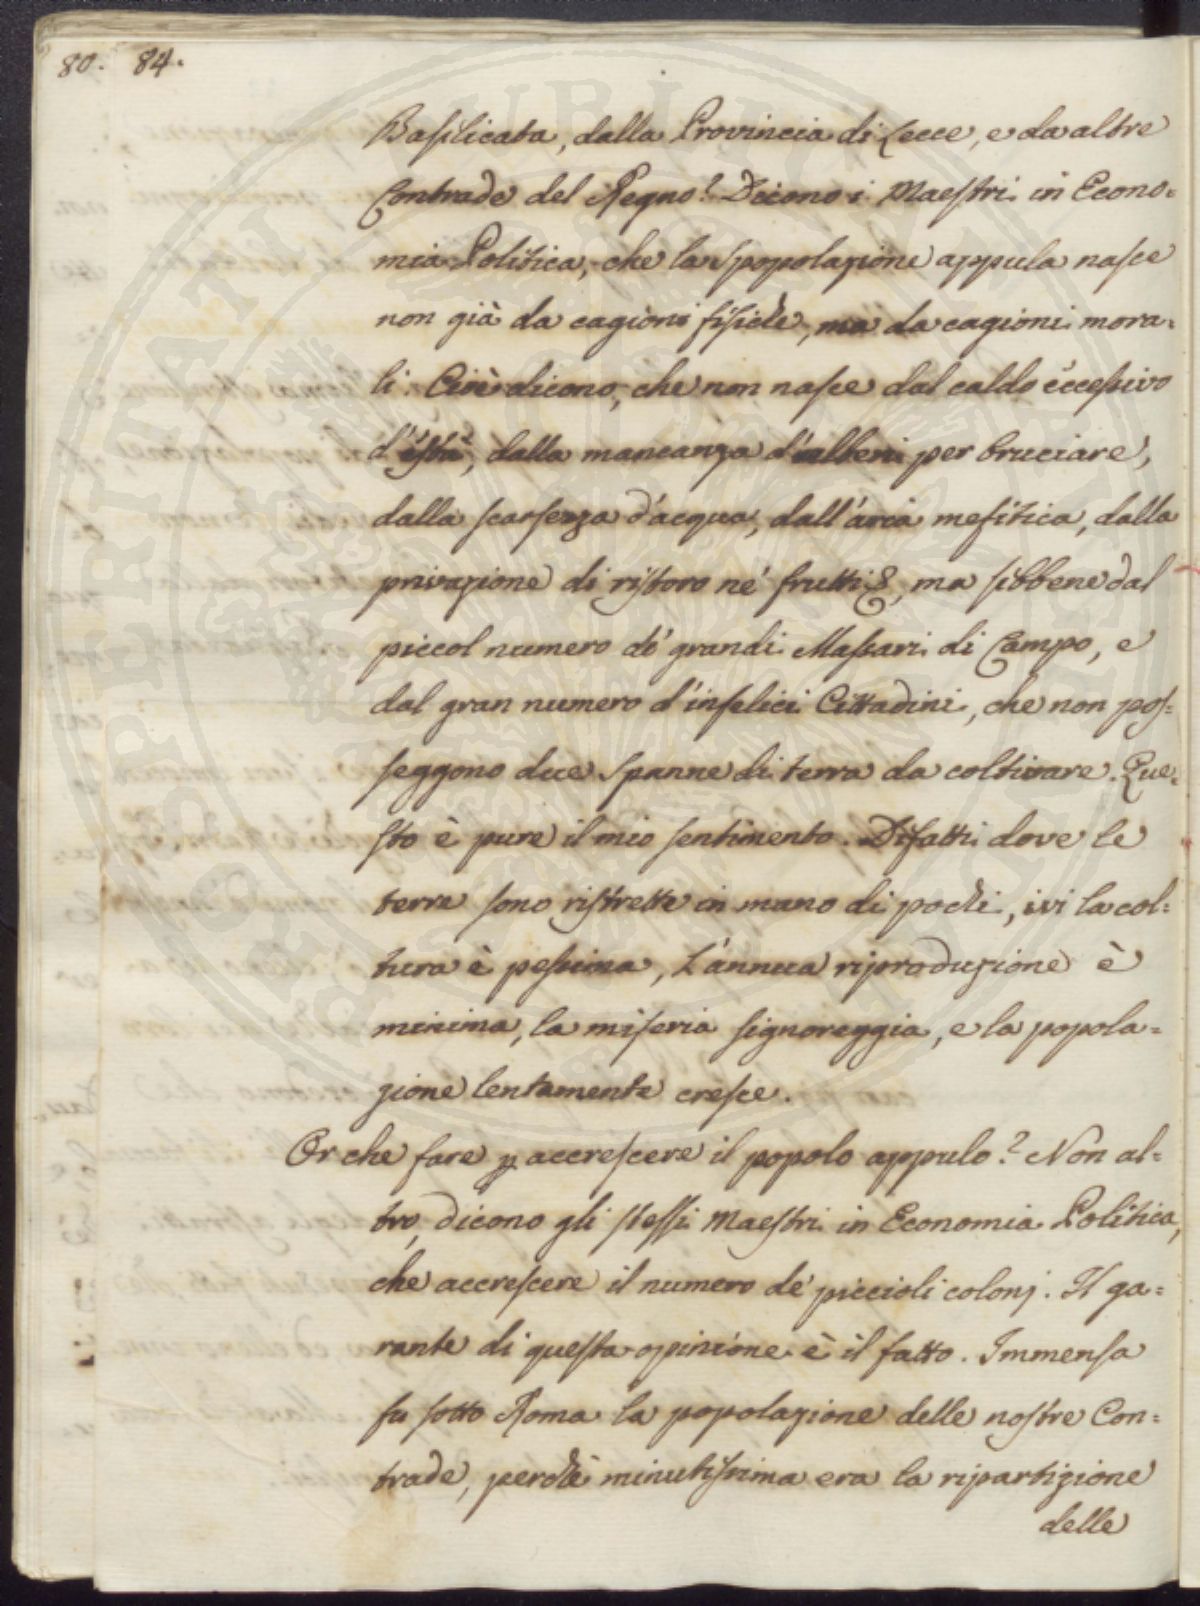 80. 84.
Basilicata, dalla Provincia di Lecce, e da altre
Contrade del Regno? Dicono i Maestri in Econo=
mia Politica, che la spopolazione appula nasce
non già da cagioni fisiche, ma da cagioni mora=
li. Cioè dicono, che non nasce dal caldo eccessivo
d'està, dalla mancanza d'alberi per bruciare,
dalla scarsezza d'acqua, dall'aria mefitica, dalla
privazione di ristoro né frutti &, ma sibbene dal
piccol numero de' grandi Massari di Campo, e
dal gran numero d'infelici Cittadini, che non pos=
seggono due spanne di terra da coltivare. Que=
sto è pure il mio sentimento. Difatti dove le
terre sono ristrette in mano di pochi, ivi la col=
tura è pessima, L'annua riproduzione è
minima, la miseria signoreggia, e la popola=
zione lentamente cresce.
Or che fare p accrescere il popolo appulo? Non al=
tro, dicono gli stessi Maestri in Economia Politica,
che accrescere il numero de' piccioli colonj. Il ga=
rante di questa opinione è il fatto. Immensa
fu sotto Roma la popolazione delle nostre Con=
trade, perchè minutissima era la ripartizione
delle
PROSPERITATI PUBLICAE